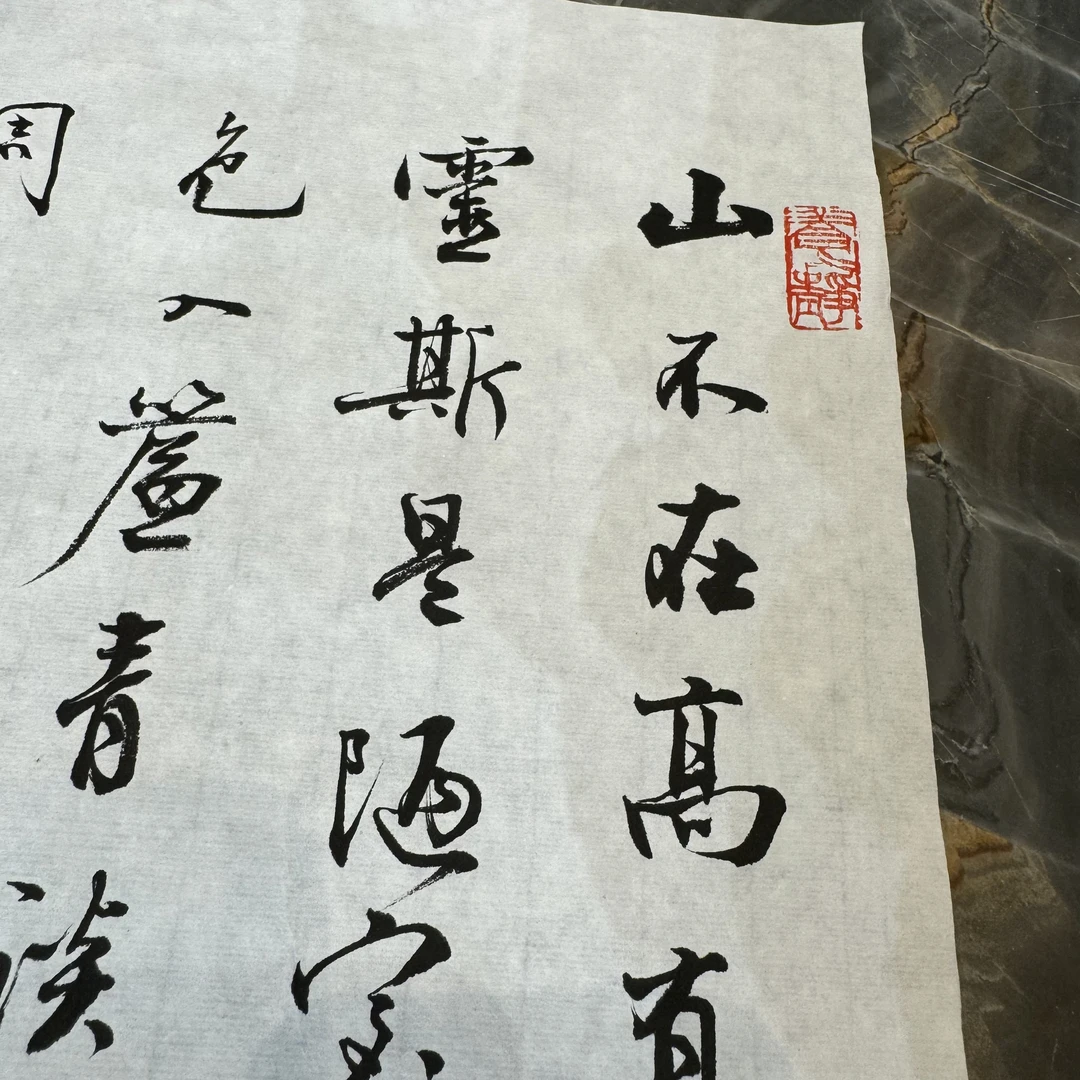 山不在高有
靈斯是陋室
色入簾青談
周